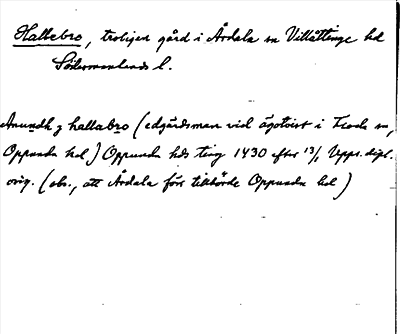 Hallebro, troligen gård i Årdala sn Villåttinge hd
Södermanlands l.
Anundh j hallabro (edgärdsman vid ägotvist i Floda sn,
Oppunda hd) Oppunda hds ting 1430 efter 13/1 Upps. dipl.
orig. (obs., att Årdala förr tillhörde Oppunda hd)